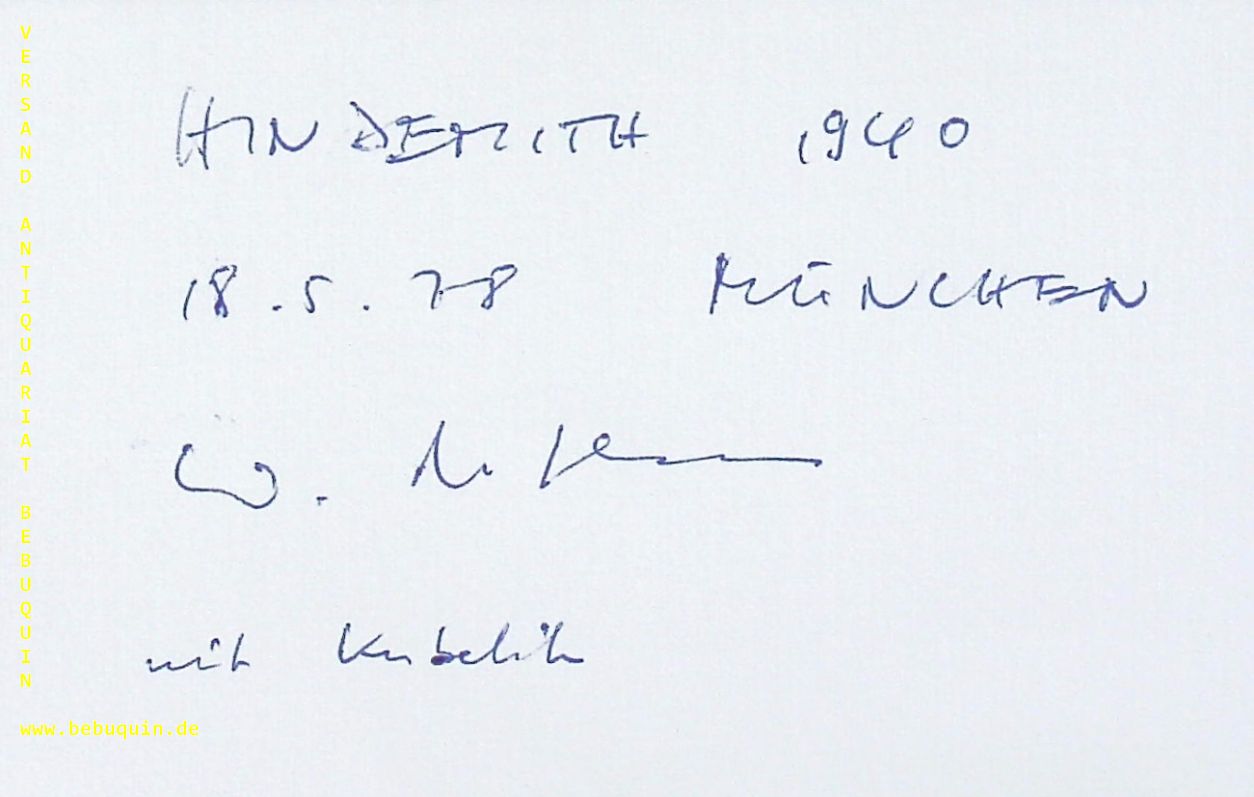 VERSAND ANTIQUARIAT BEBUQUIN
HINDEMITH 1940
18.5.78 MÜNCHEN
W.
mit Kubelik
www.bebuquin.de